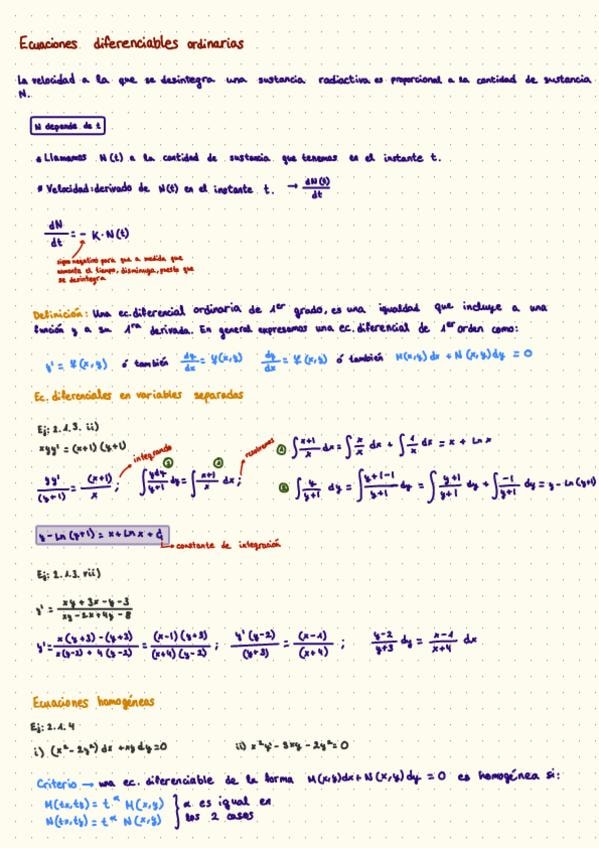 Ecuaciones diferenciables ordinarias
La velocidad a la que se desintegra una sustancia radiactiva es proporcional a la cantidad de sustancia
N.
N depende de t
• Llamamos N(t) a la cantidad de sustancia que tenemos en el instante t.
• Velocidad: derivado de N(t) en el instante t. → dN(t)/dt
dN/dt = - K · N(t)
signo negativo para que a medida que
aumente el tiempo, disminuya, puesto que
se desintegra
Definición: Una ec. diferencial ordinaria de 1er grado, es una igualdad que incluye a una
función y a su 1ra derivada. En general expresamos una ec. diferencial de 1er orden como:
y' = f(x,y) ó también dy/dx = f(x,y) dy/dx = f(x,y) ó también M(x,y) dx + N(x,y) dy = 0
Ec. diferenciales en variables separadas
Ej: 2.1.3. ii)
xyy' = (x+1)(y+1)
yy'/(y+1) = (x+1)/x ; integrando ∫ ydy/y+1 dy = ∫ x+1/x dx ; resolvemos
① ∫ x+1/x dx = ∫ x/x dx + ∫ 1/x dx = x + Ln x
② ∫ y/y+1 dy = ∫ y+1-1/y+1 dy = ∫ y+1/y+1 dy + ∫ -1/y+1 dy = y - Ln(y+1)
y - Ln(y+1) = x + Ln x + C
→ constante de integración
Ej: 2.1.3. vii)
y' = xy + 3x - y - 3 / xy - 2x + 4y - 8
y' = x(y+3) - (y+3) / x(y-2) + 4(y-2) = (x-1)(y+3) / (x+4)(y-2) ; y'(y-2)/(y+3) = (x-1)/(x+4) ; y-2/y+3 dy = x-1/x+4 dx
Ecuaciones homogéneas
Ej: 2.1.4
i) (x²-2y²) dx + xy dy = 0 ii) x²y' - 3xy - 2y² = 0
Criterio → una ec. diferenciable de la forma M(x,y)dx + N(x,y)dy = 0 es homogénea si:
M(tx,ty) = t^α M(x,y)
N(tx,ty) = t^α N(x,y)
} α es igual en
los 2 casos